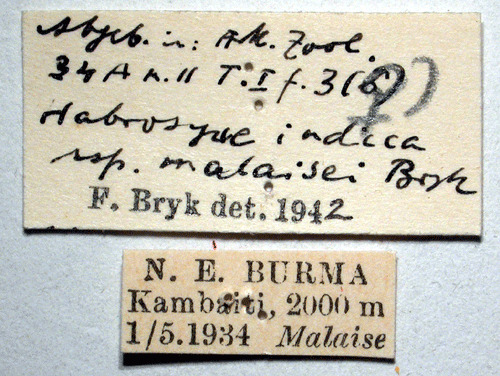 Abgeb. in: Ark. Zool.
34 A n. 11 T. I f. 3 (♀)
Habrosyne indica
ssp. malaisei Bryk
F. Bryk det. 1942
N. E. BURMA
Kambaiti, 2000 m
1/5.1934 Malaise